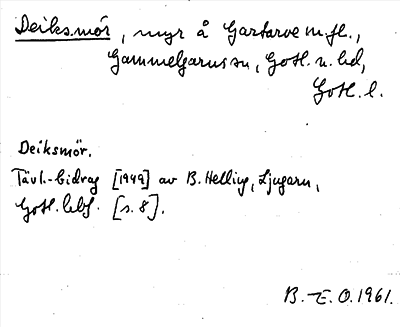 Deiksmör, myr å Gartarve m.fl.,
Gammelgarns sn, Gotl. n. hd,
Gotl. l.
Deiksmör.
Tävl.-bidrag [1949] av B. Helling, Ljugarn,
Gotl. [s. 8].
B. E. O. 1961.